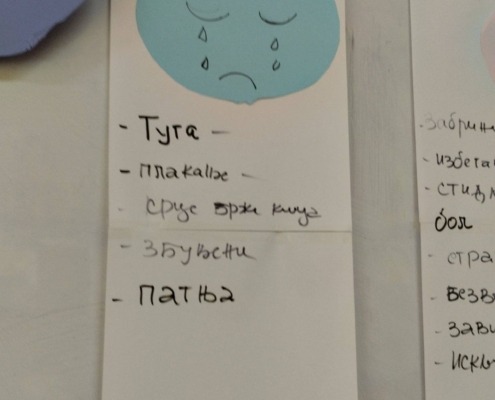 - Туга -
- плакање -
- срце брже куца
- збуњени
- патња
- забрин
- избега
- стид
бол
- стра
- безв
- зави
- искљ